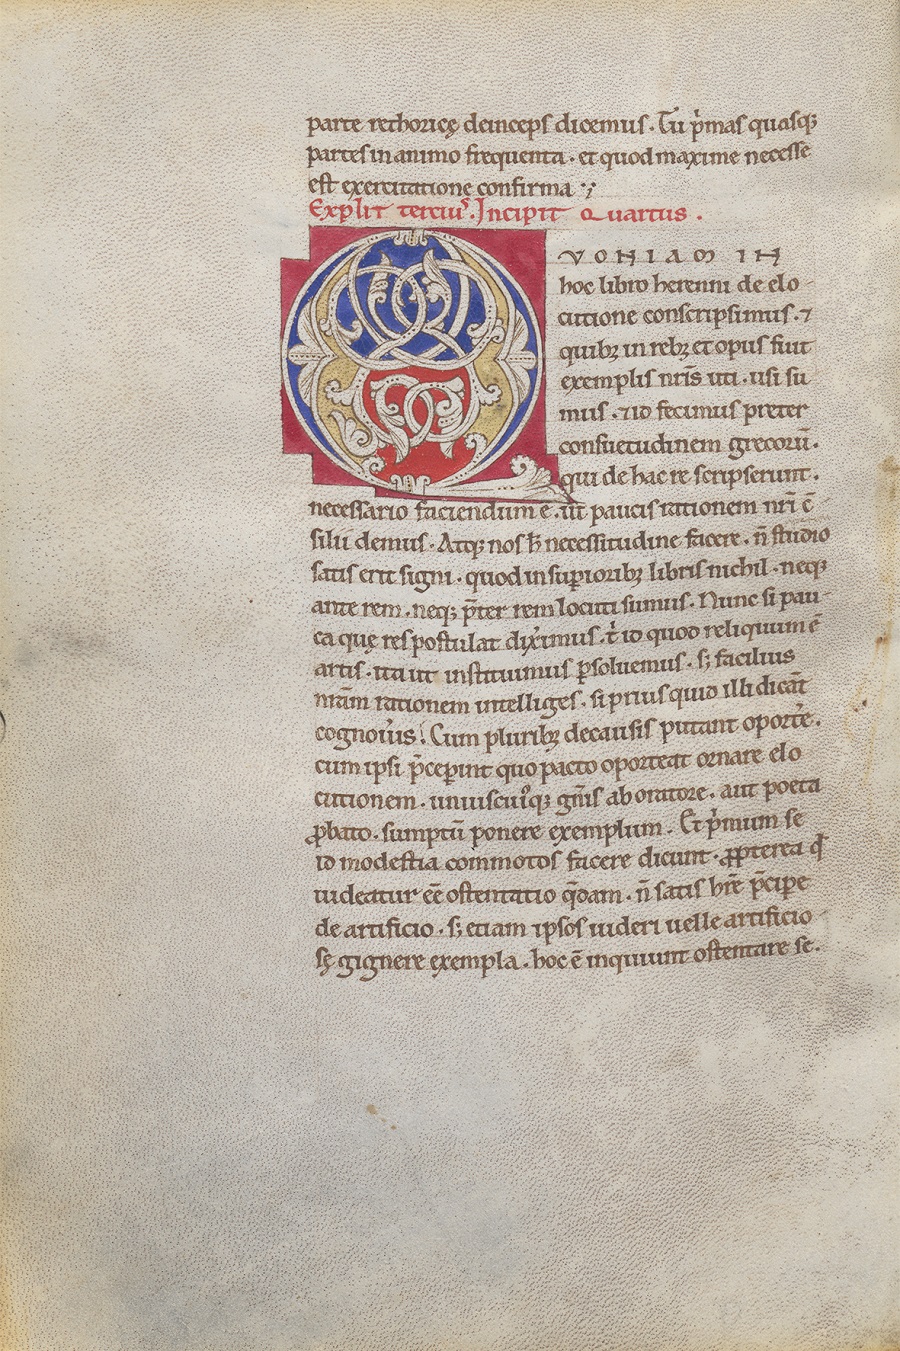 parte rethoricę deinceps dicemus. Tu p̾mas quasq;
partes in animo frequenta. et quod maxime necesse
est exercitatione confirma :;
Explit terciuˢ. Incipit Quartus.
QVONIAM IN
hoc libro herenni de elo-
cutione conscripsimus. ⁊
quib; in reb; et opus fuit
exemplis nr̄is uti. usi su
mus. ⁊ id fecimus preter
consuetudinem grecorū.
qui de hac re scripserunt.
necessario faciendum ē. ut paucis rationem nr̄i c̄-
silii demus. Atq; nos h̄ necessitudine facere. n̄ studio
satis erit signi. quod in supiorib; libris nichil. neq;
ante rem. neq; p̄ter rem locuti sumus. Nunc si pau-
ca quę res postulat diximus. t̾ id quod reliquum ē
artis. ita ut instituimus ꝑsoluemus. s; facilius
nr̄am rationem intelliges. si prius quid illi dicāt
cognoūis. Cum plurib; de causis putant oportē.
cum ipsi p̄ceperint quo pacto oporteat ornare elo
cutionem. uniuscuiꝰq; gn̄is ab oratore. aut poeta
ꝓbato. sumptū ponere exemplum. Et p̾mum se
id modestia commotos facere dicunt. ꝓpterea qđ
uideatur eē ostentatio q̄dam. n̄ satis hr̄e p̄cipe
de artificio. s; etiam ipsos uideri uelle artificio-
sę gignere exempla. hoc ē inquiunt ostentare se.